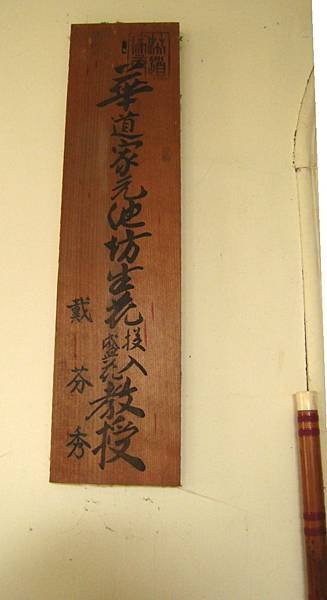 華道家元池坊生花投入盛花教授
戴芬秀